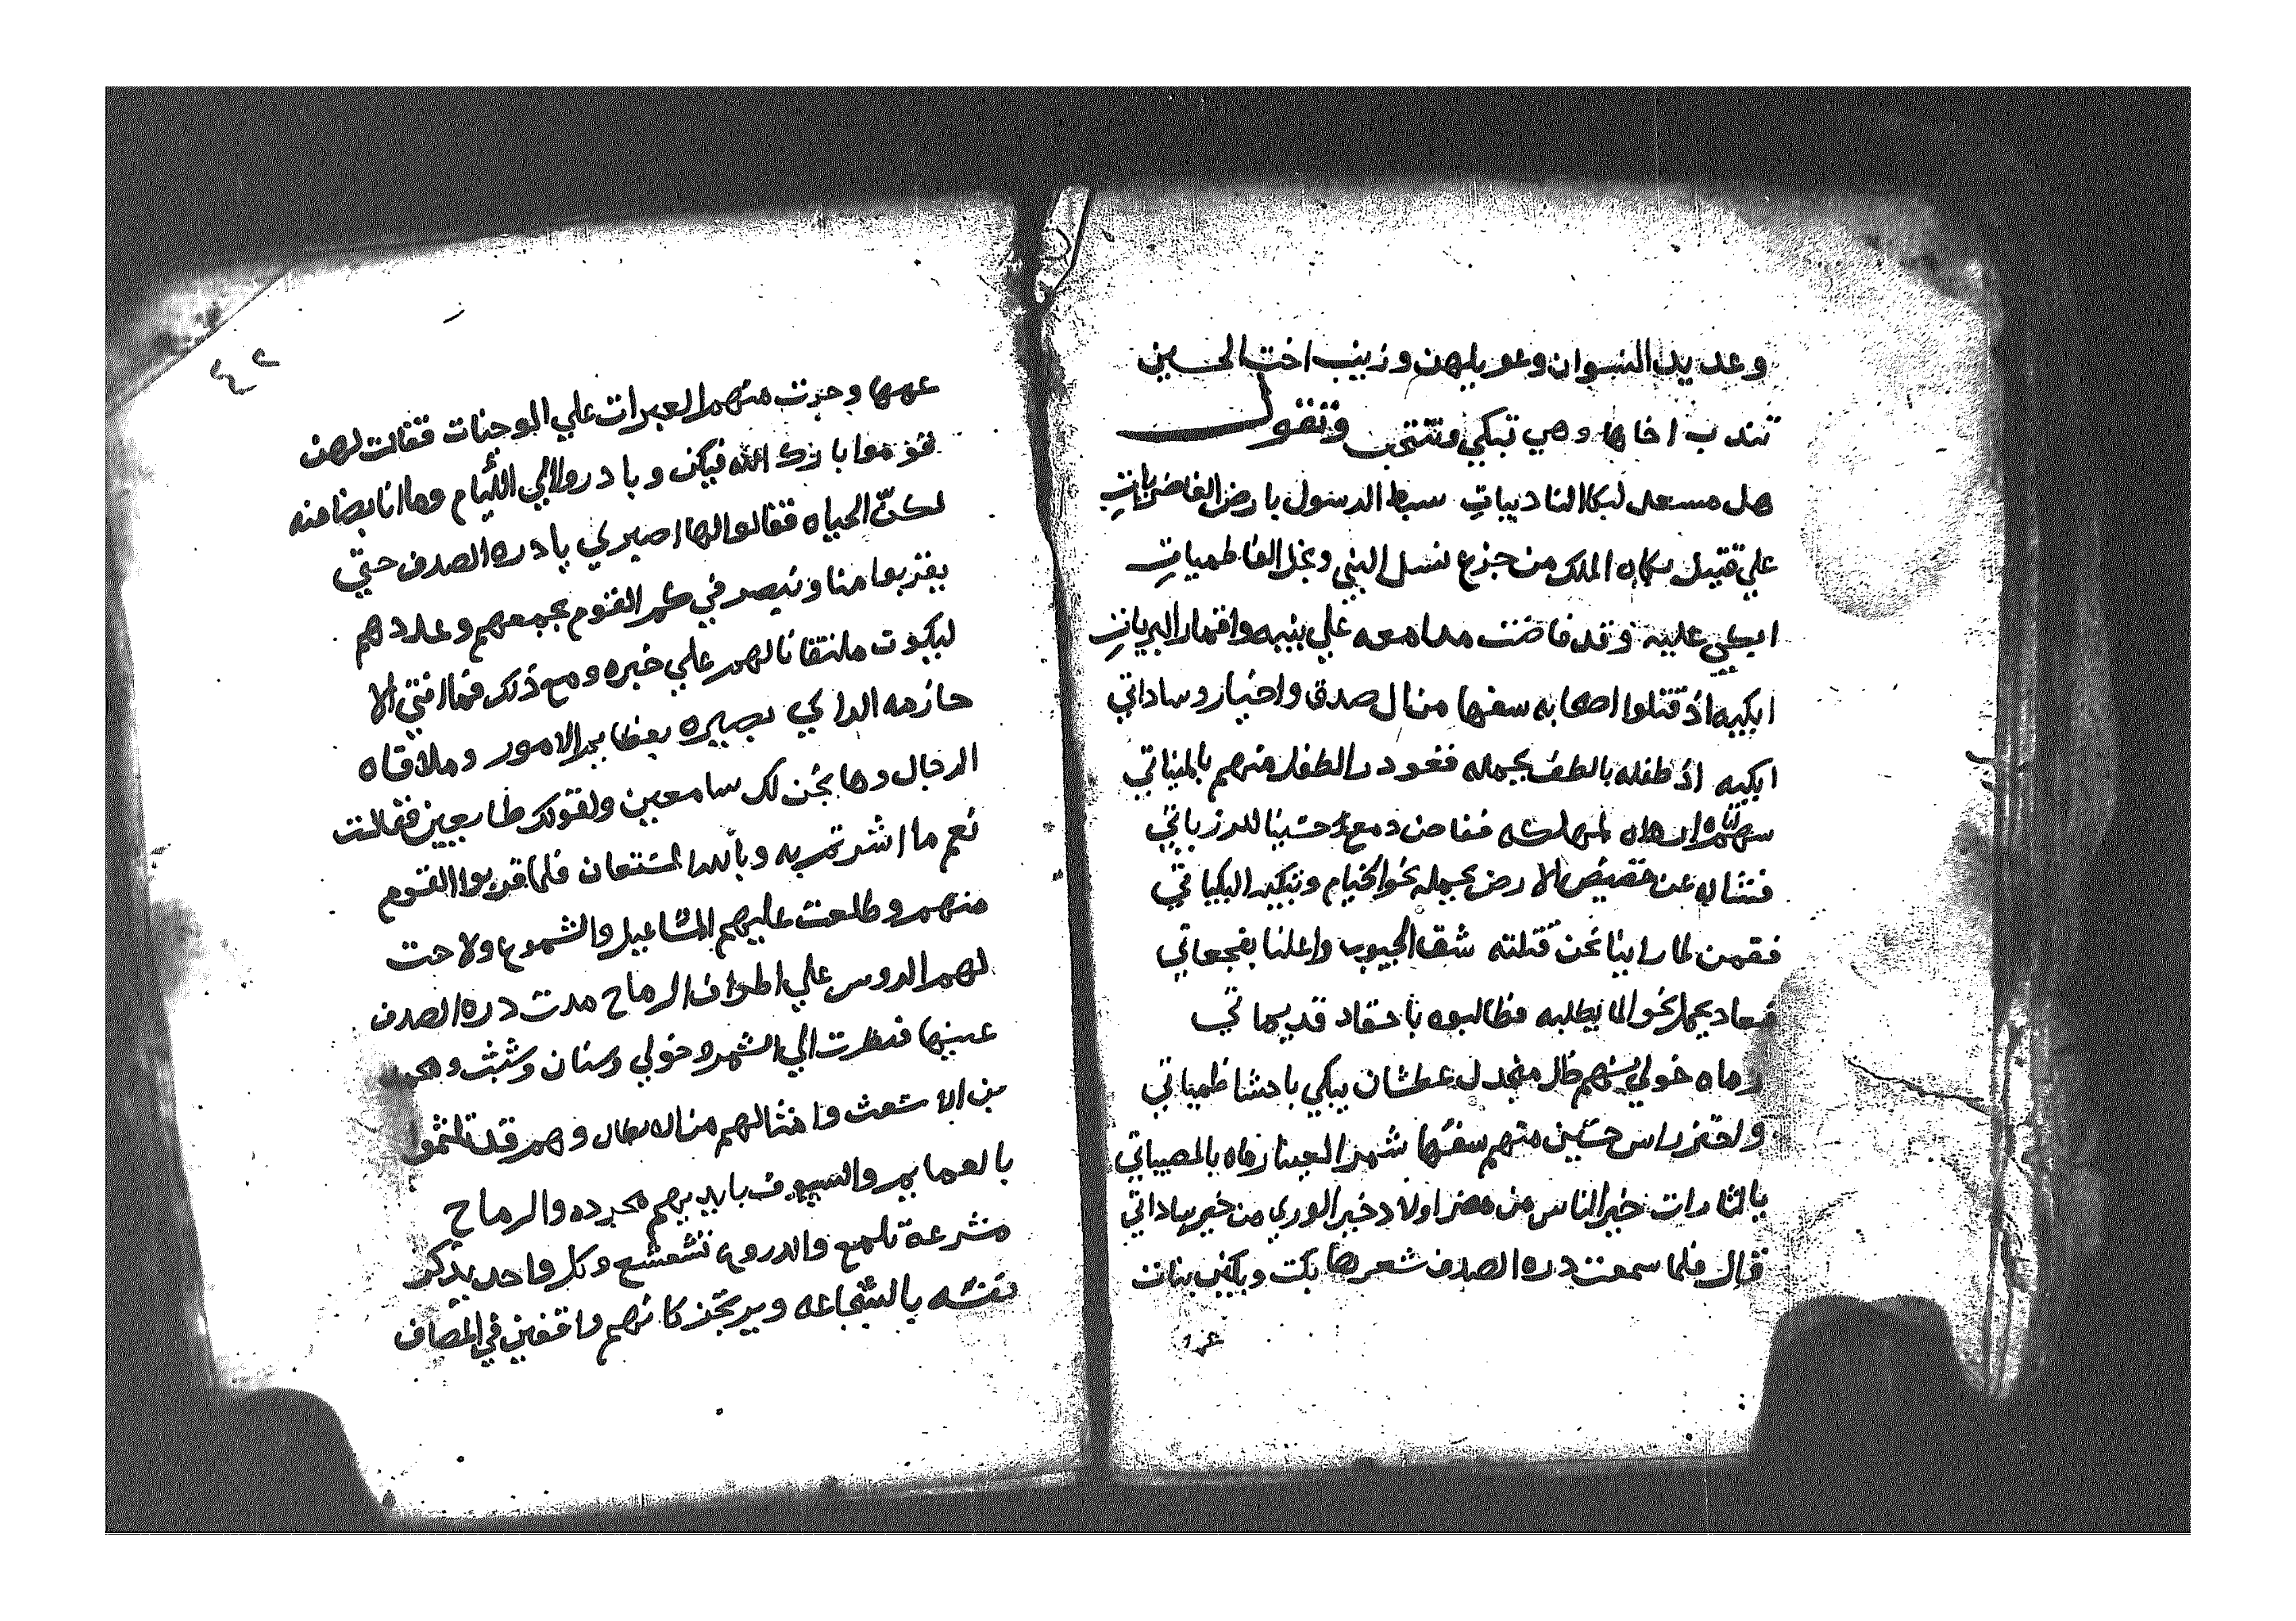 وعديد النسوان وعويلهن وزينب اخت الحسين
تندب اخاها وهي تبكي وتنتحب وتقول
هل مسعد لبكا النادبيات سبط الرسول بارض الغاضريات
علي قتيل بكاه الملك من جزع نسل النبي ونجل الفاطميات
ابكي عليه وقد فاضت مدامعه علي بنيه واقمار البريات
ابكيه اذ قتلوا اصحابه سفها من ال صدق واخيار وساداتي
ابكيه اذ طفله بالطف يحمله فغودر الطفل منهم بالمنياتي
سهم لمهلكه ففاض دمع حسينا للرزياتي
فشاله عن حضيض الارض يحمله نحو الخيام وتبكيه البكياتي
فقمن لما راينا نحن قتلته شق الجيوب واعلنا بفجعاتي
فعاد يحمل نحو الما يطلبه فطالبوه باحقاد قديماتي
رماه خولي بسهم ظل منجدل عطشان يبكي باحشا ظمياتي
واحتز راس حسين منهم سفها شمر الجنا رماه بالمصيباتي
يالثارات خير الناس من مضر اولاد خير الوري من خير ساداتي
قال فلما سمعت دره الصدف شعرها بكت وبكين بنات
عمها
٤٢
عمها وجرت منهم العبرات علي الوجنات فقالت لهن
قوموا بارك الله فيكن وبادروا الي اللئام وها انا بضامنه
لكنّ الحياه فقالوا لها اصبري يا دره الصدف حتي
يقربوا منا ونبصر في كم القوم بجمعهم وعددهم
ليكون ملتقانا لهم علي خبره ومع ذلك فما انتي الا
حازمه الراي بصيره بعظايم الامور وملاقاه
الرجال وها نحن لك سامعين ولقولك طايعين فقالت
نعم ما اشرتم به وبالله المستعان فلما قربوا القوم
منهم وطلعت عليهم المشاعيل والشموع ولاحت
لهم الروس علي اطراف الرماح مدت دره الصدف
عينها فنظرت الي الشمر وخولي وسنان وشبث ومحمد
بن الاشعث وامثالهم من الابطال وهم قد تلثموا
بالعمايم والسيوف بايديهم مجرده والرماح
مشرعة تلمع والدروع تشعشع وكل واحد يذكر
نفسه بالشجاعه ويرتجز كانهم واقفين في المصاف